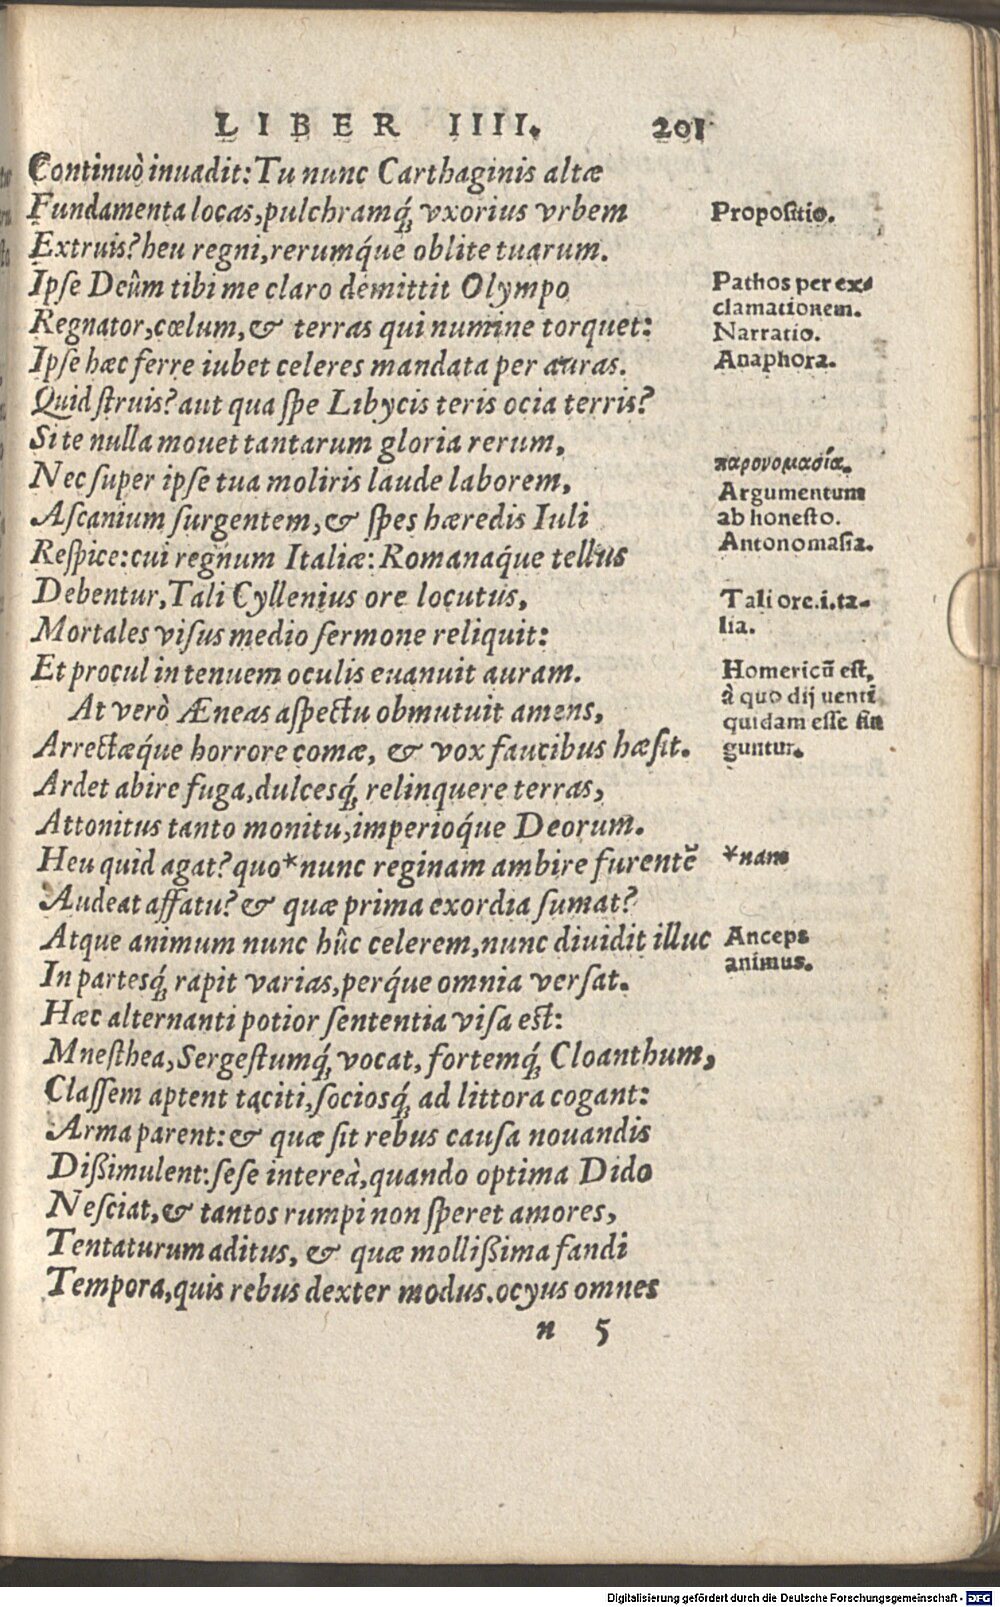 LIBER IIII. 201
Continuò inuadit: Tu nunc Carthaginis altæ
Fundamenta locas, pulchramq́; vxorius vrbem
Propositio.
Extruis? heu regni, rerumq́ue oblite tuarum.
Ipſe Deûm tibi me claro demittit Olympo
Pathos per ex-
clamationem.
Regnator, cœlum, & terras qui numine torquet:
Narratio.
Ipſe hæc ferre iubet celeres mandata per auras.
Anaphora.
Quid ſtruis? aut qua ſpe Libycis teris ocia terris?
Si te nulla mouet tantarum gloria rerum,
παρονομασία.
Nec ſuper ipſe tua moliris laude laborem,
Argumentum
ab honeſto.
Aſcanium ſurgentem, & ſpes hæredis Iuli
Antonomaſia.
Reſpice: cui regnum Italiæ: Romanaq́ue tellus
Debentur, Tali Cyllenius ore locutus,
Tali ore.i.ta-
lia.
Mortales viſus medio ſermone reliquit:
Et procul in tenuem oculis euanuit auram.
Homericū eſt,
à quo dij uenti
quidam eſſe fin
guntur.
At verò Æneas aſpectu obmutuit amens,
Arrectæq́ue horrore comæ, & vox faucibus hæſit.
Ardet abire fuga, dulcesq́; relinquere terras,
Attonitus tanto monitu, imperioq́ue Deorum.
Heu quid agat? quo*nunc reginam ambire furentē
*nam
Audeat affatu? & quæ prima exordia ſumat?
Atque animum nunc hûc celerem, nunc diuidit illuc
Anceps
animus.
In partesq́; rapit varias, perq́ue omnia verſat.
Hæc alternanti potior ſententia viſa eſt:
Mneſthea, Sergeſtumq́; vocat, fortemq́; Cloanthum,
Claſſem aptent taciti, ſociosq́; ad littora cogant:
Arma parent: & quæ ſit rebus cauſa nouandis
Dißimulent: ſeſe intereà, quando optima Dido
Neſciat, & tantos rumpi non ſperet amores,
Tentaturum aditus, & quæ mollißima fandi
Tempora, quis rebus dexter modus. ocyus omnes
n 5
Digitalisierung gefördert durch die Deutsche Forschungsgemeinschaft - DFG